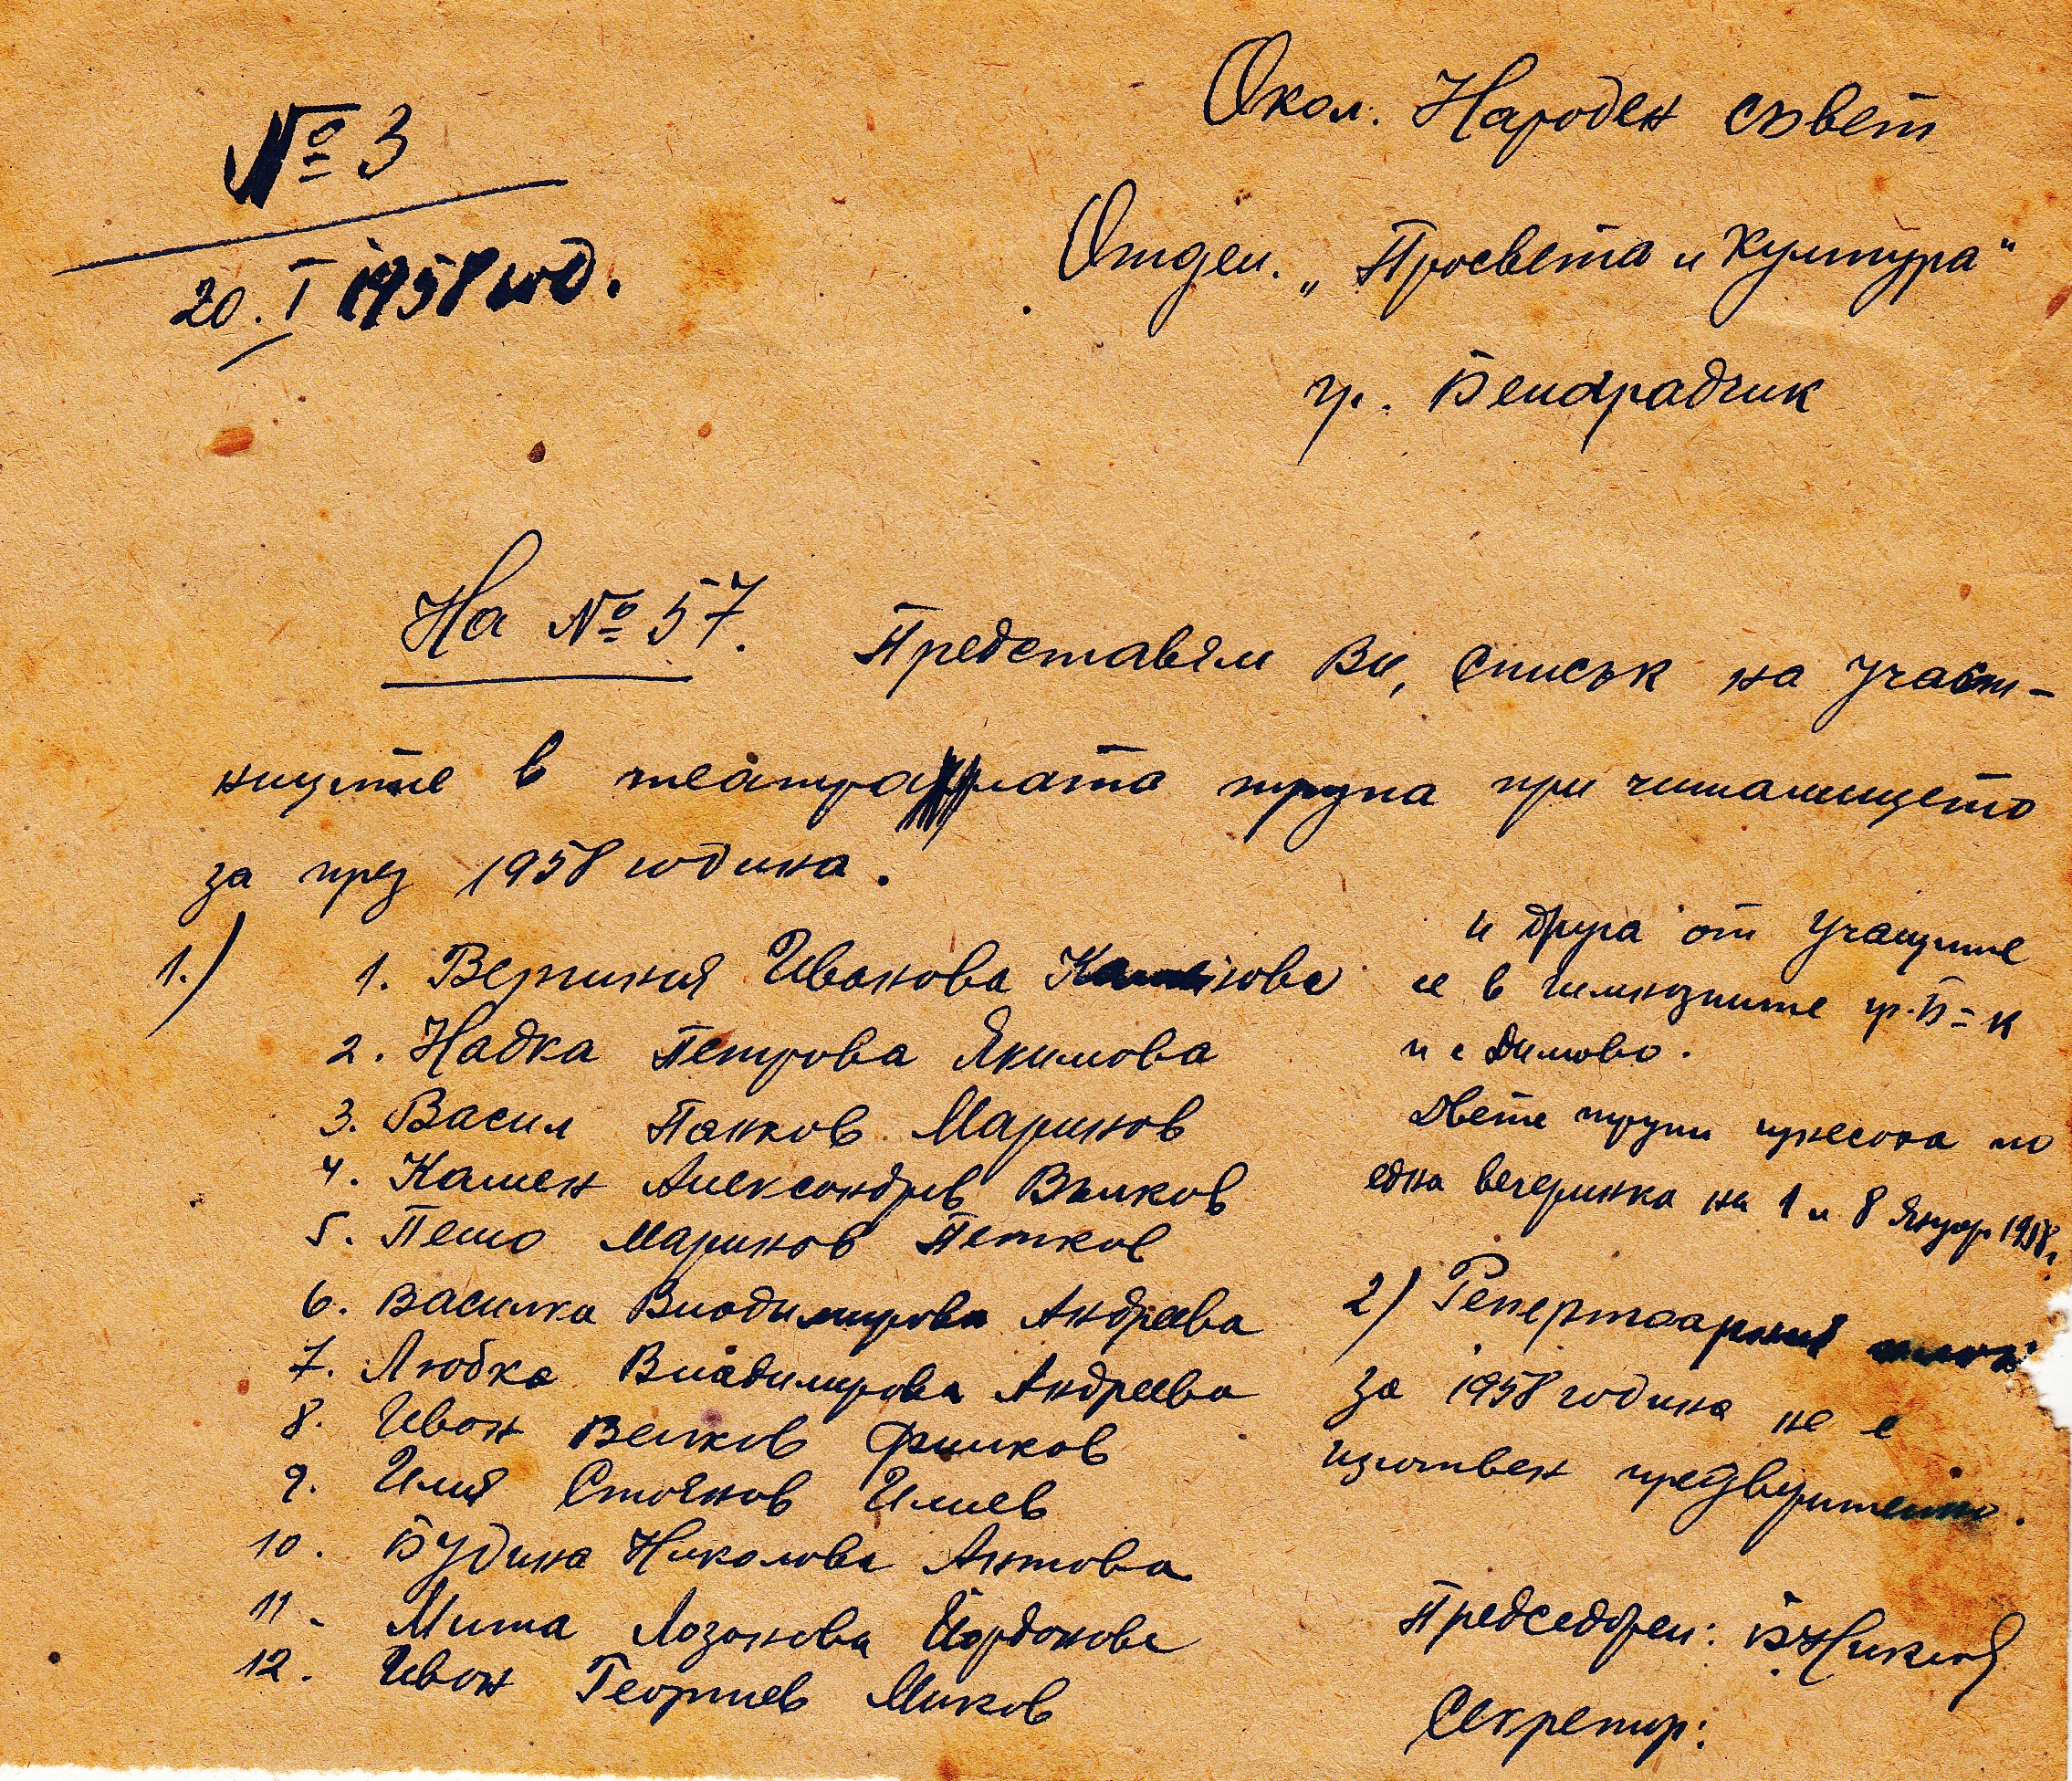 № 3
20. I 1958 год.
Окол. Народен съвет
Отдел. „Просвета и Култура“
гр. Белоградчик
На № 57. Представям Ви, списък на участ-
ниците в театралата трупа при читалището
за през 1958 година.
1.) 1. Вергиния Иванова
2. Надка Петрова Якимова
3. Васил Панков Маринов
4. Камен Александров Вълков
5. Пешо Маринов Петков
6. Василка Владимирова Андреева
7. Любка Владимирова Андреева
8. Иван Велков Филков
9. Илия Стоянов Илиев
10. Будина Николова Антова
11. Мита Лозанова Йорданова
12. Иван Георгиев Миков
и друга от учащите
се в гимназиите гр. Б=к
и с Димово.
Двете трупи изнесоха по
една вечеринка на 1 и 8 Януар 1958 г.
2) Репертоарния
за 1958 година не е
изготвен предварително.
Председател:
Секретар: